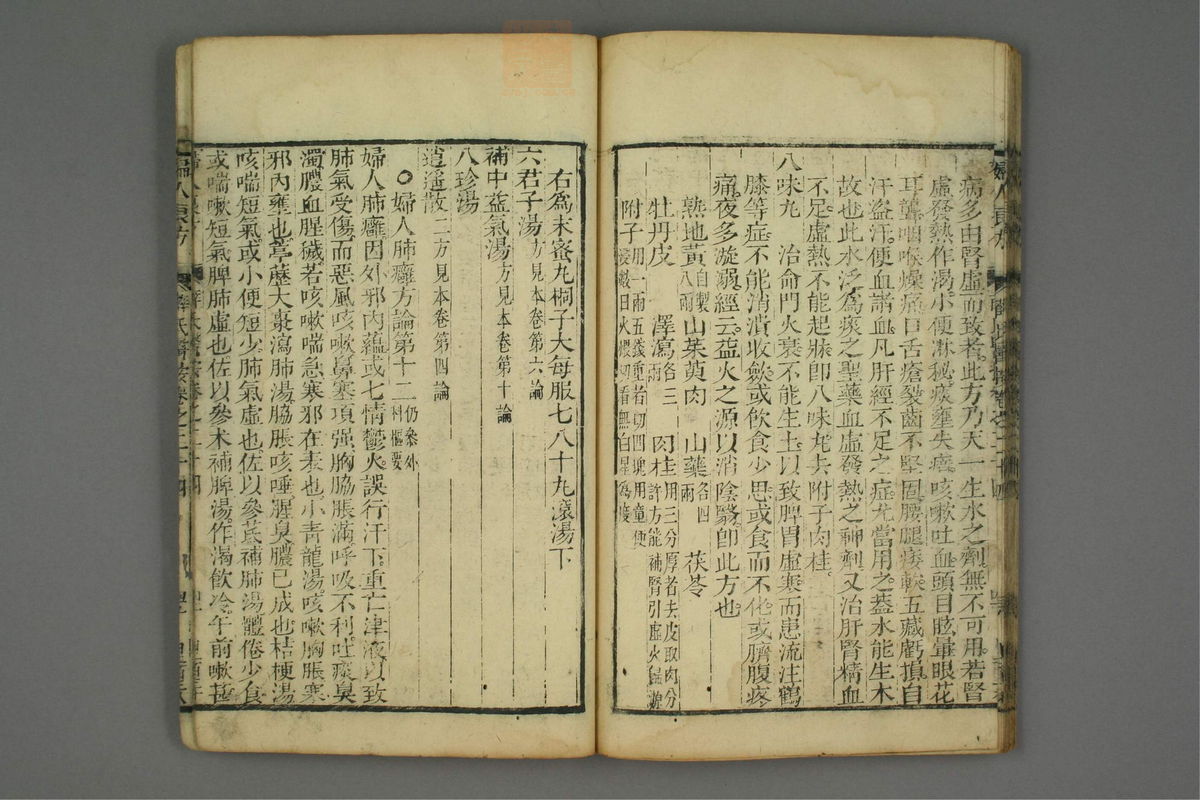 病多由腎虛而致者此方乃天一生水之劑無不可用若腎
虛發熱作渴小便淋秘痰壅失瘖咳嗽吐血頭目眩暈眼花
耳聾咽喉燥痛口舌瘡裂齒不堅固腰腿痿軟五臟虧損自
汗盜汗便血諸血凡肝經不足之症尤當用之蓋水能生木
故也此水泛為痰之聖藥血虛發熱之神劑又治肝腎精血
不足虛熱不能起牀即八味丸去附子肉桂
八味丸 治命門火衰不能生土以致脾胃虛寒而患流注鶴
膝等症不能消潰收斂或飲食少思或食而不化或臍腹疼
痛夜多漩溺經云益火之源以消陰翳即此方也
熟地黃自製八兩 山茱萸肉 山藥各四兩 茯苓
牡丹皮 澤瀉各三兩 肉桂用三分厚者去皮取肉分許方能補腎引虛火歸源
附子用一兩五錢重者切四塊用童便浸數日火煨切看無白星為度
右爲末蜜丸桐子大每服七八十丸滾湯下
六君子湯方見本卷第六論
補中益氣湯方見本卷第十論
八珍湯
逍遥散二方見本卷第四論
婦人肺癰方論第十二仍參外科樞要
婦人肺癰因外邪內蘊或七情鬱火誤行汗下重亡津液以致
肺氣受傷而惡風咳嗽鼻塞項强胸脇脹滿呼吸不利吐痰臭
濁膿血腥穢若咳嗽喘急寒邪在表也小青龍湯咳嗽胸脹寒
邪內壅也葶藶大棗瀉肺湯脇脹咳唾腥臭膿已成也桔梗湯
咳喘短氣或小便短少肺氣虛也佐以參芪補肺湯體倦少食
或喘嗽短氣脾肺虛也佐以參朮補脾湯作渴飲冷午前嗽甚